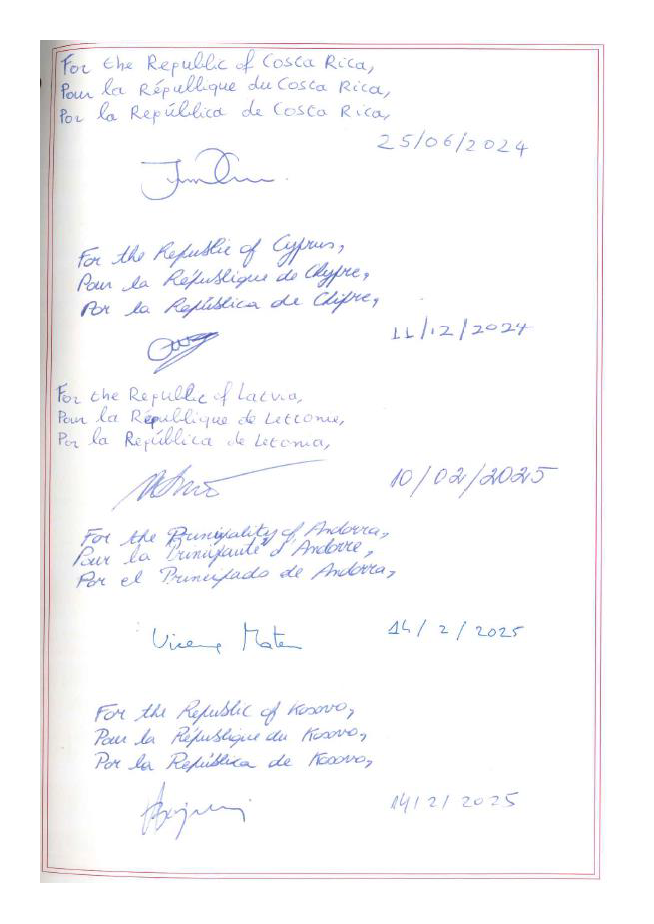 For the Republic of Costa Rica,
Pour la République du Costa Rica,
Por la República de Costa Rica,
25/06/2024
For the Republic of Cyprus,
Pour la République de Chypre,
Por la República de Chipre,
11/12/2024
For the Republic of Latvia,
Pour la République de Lettonie,
Por la República de Letonia,
10/02/2025
For the Principality of Andorra,
Pour la Principauté d'Andorre,
Por el Principado de Andorra,
14/2/2025
For the Republic of Kosovo,
Pour la République du Kosovo,
Por la República de Kosovo,
14/2/2025